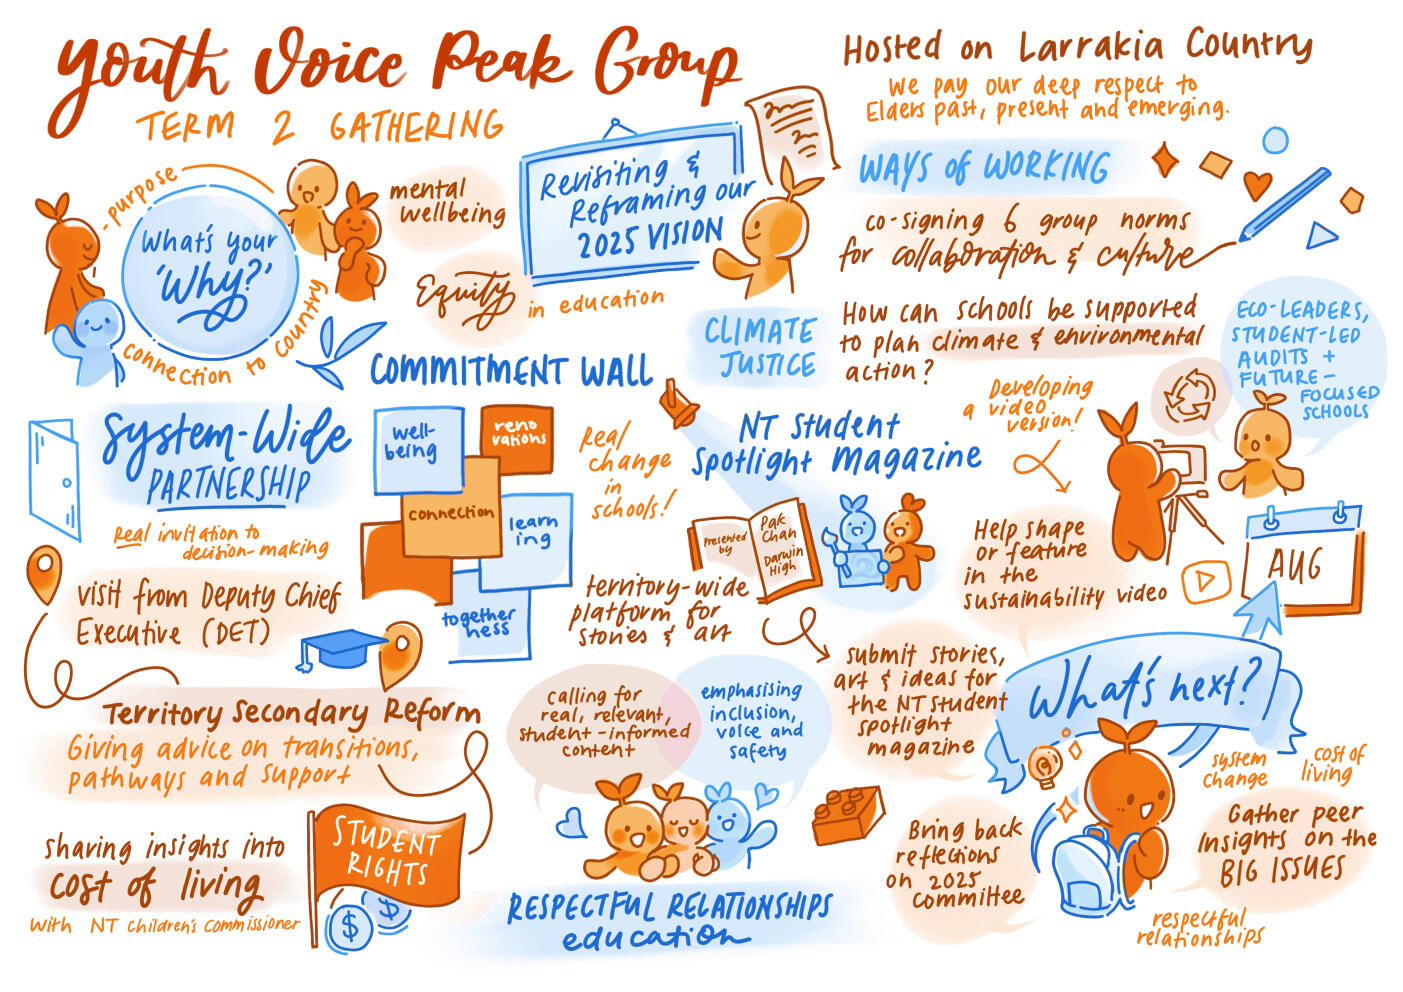 Youth Voice Peak Group
TERM 2 GATHERING
Hosted on Larrakia Country
We pay our deep respect to
Elders past, present and emerging.
purpose
What's your
'Why?'
connection to country
mental
wellbeing
Equity
in education
Revisiting &
Reframing our
2025 VISION
WAYS OF WORKING
co-signing 6 group norms
for collaboration & culture
CLIMATE
JUSTICE
How can schools be supported
to plan climate & environmental
action?
ECO-LEADERS,
STUDENT-LED
AUDITS +
FUTURE-
FOCUSED
SCHOOLS
Developing
a video
version!
Help shape
or feature
in the
sustainability video
AUG
COMMITMENT WALL
well-
being
reno
vations
connection
learn
ing
together
ness
Real
change
in
schools!
System-Wide
PARTNERSHIP
Real invitation to
decision-making
visit from Deputy Chief
Executive (DET)
Territory Secondary Reform
Giving advice on transitions,
pathways and support
sharing insights into
cost of living
with NT Children's Commissioner
STUDENT
RIGHTS
$
$
NT Student
Spotlight Magazine
Presented
by
Pak
Chan
Darwin
High
territory-wide
platform for
stories & art
submit stories,
art & ideas for
the NT Student
spotlight
magazine
calling for
real, relevant,
student-informed
content
emphasising
inclusion,
voice and
safety
RESPECTFUL RELATIONSHIPS
education
What's next?
system
change
cost of
living
Bring back
reflections
on 2025
committee
Gather peer
insights on the
BIG ISSUES
respectful
relationships